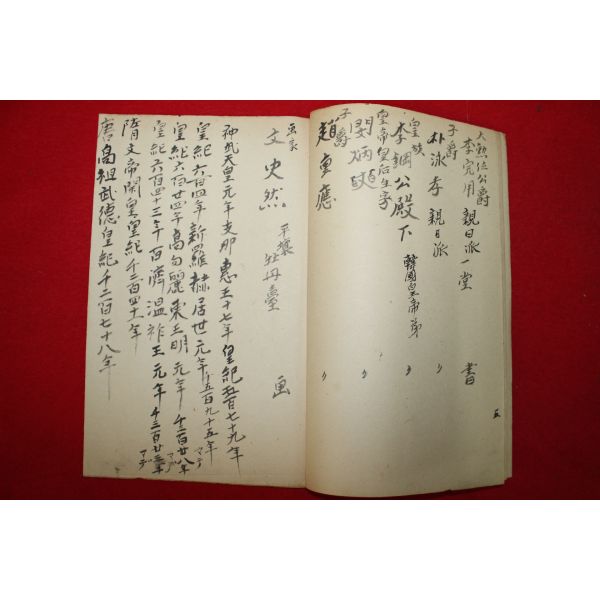 大勲位公爵
李完用 親日派 一堂 書
子爵
朴泳孝 親日派 〃
皇族
李堈公殿下 韓國皇帝弟 〃
皇帝皇后生家
閔炳奭 〃
子爵
趙重應 〃
五
画家
文史然 平壤牡丹臺 画
神武天皇元年支那惠王十七年皇紀五百七十九年
皇紀六百四年新羅赫居世元年千五百九十五年マデ
皇紀六百廿四年高句麗東王明元年千三百廿八年マデ
皇紀六百四十三年百濟温祚王元年千三百廿三年マデ
隋文帝開皇皇紀千二百四十一年
唐高祖武德皇紀千二百七十八年